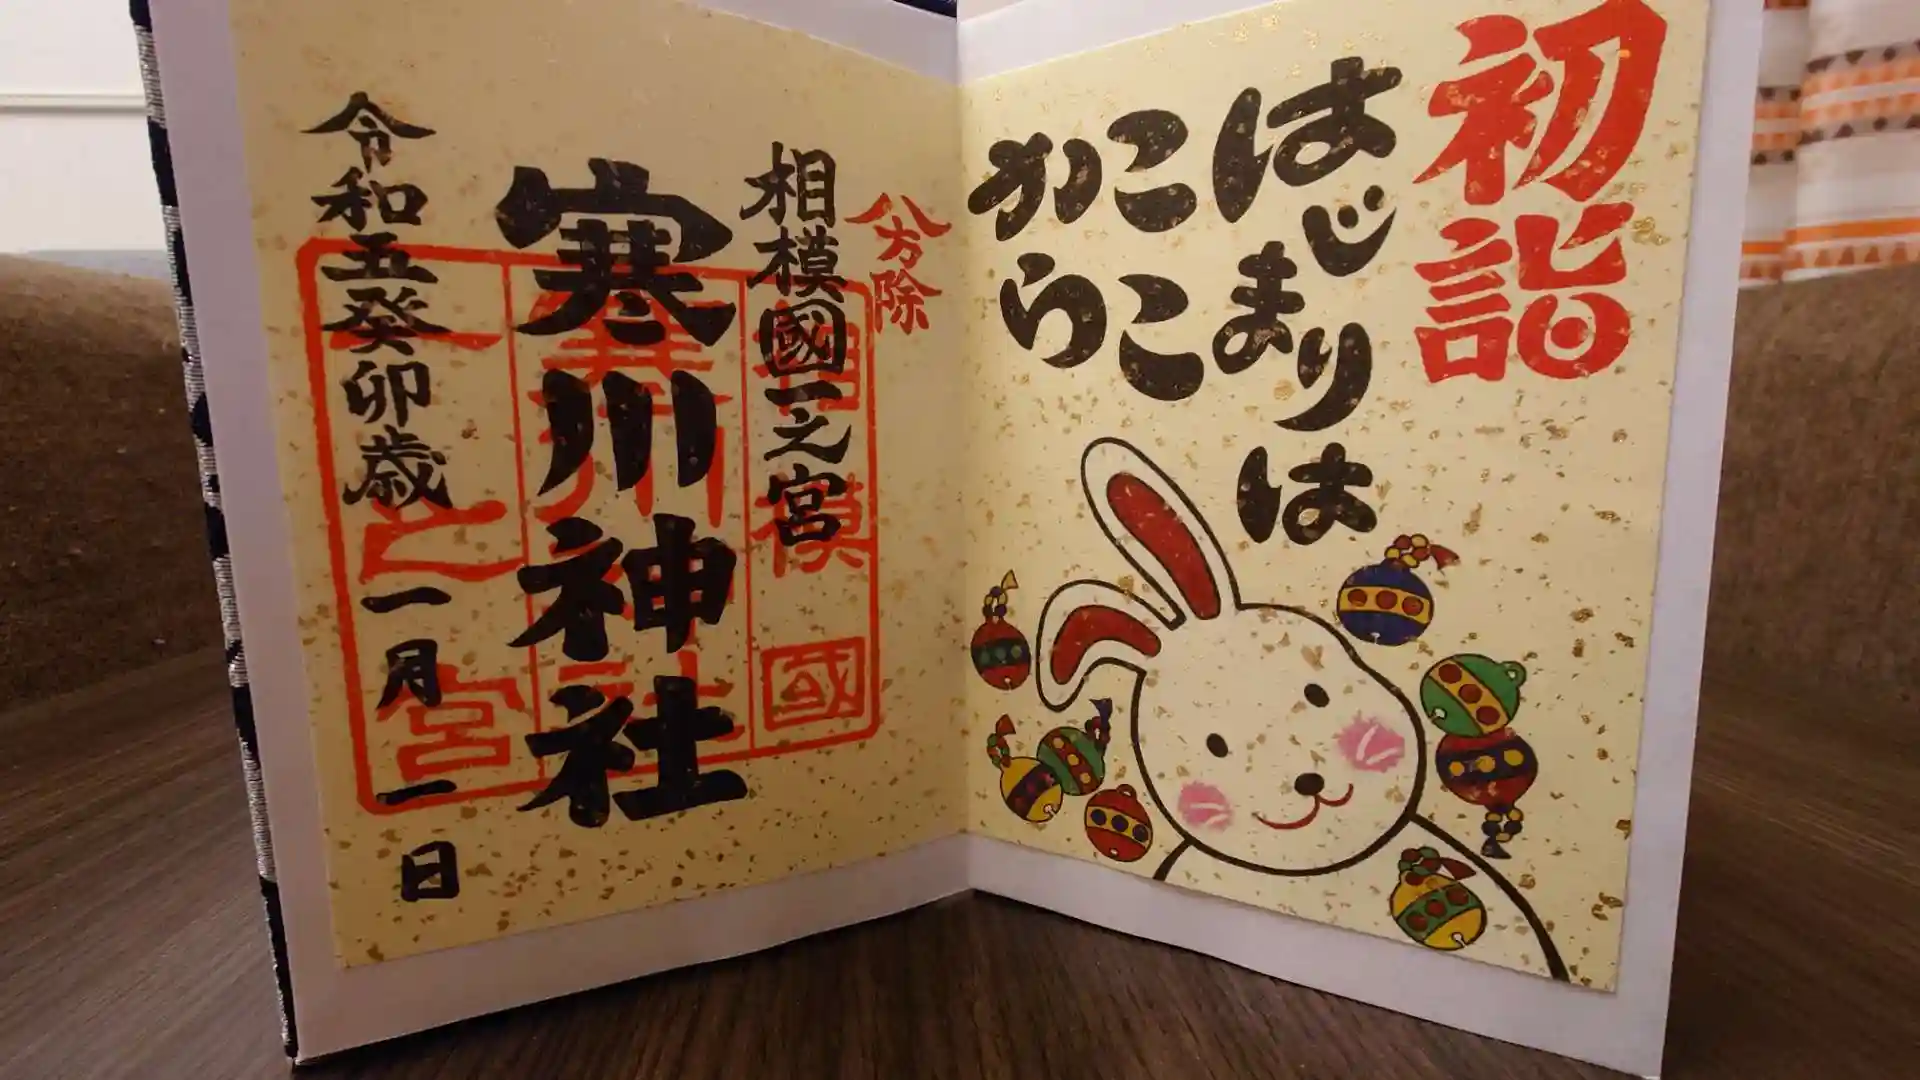 初詣
はじまりは
ここ
から
八方除
相模國一之宮
寒川神社
令和五癸卯歳一月一日
相模國
寒川神社
一之宮